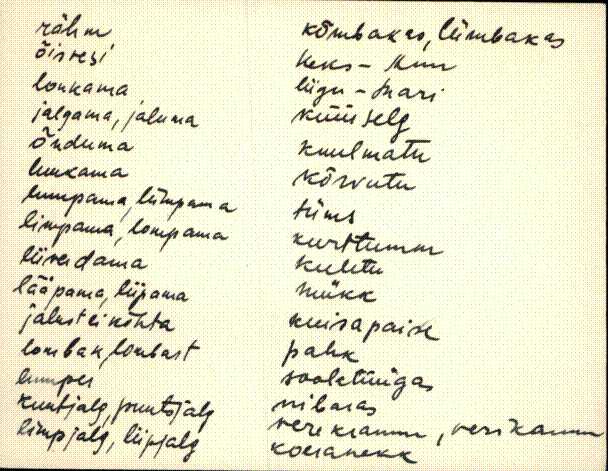 rähm
õisvesi
lonkama
jalgama, jaluma
õnduma
luukama
lumpama, lümpama
limpama, lompama
liiverdama
lääpama, liipama
jalust ei kõhta
lombak, lombast
lumper
kuntjalg, puntsjalg
limpjalg, liipjalg
kõmbakas, lümbakas
keks-
liigu-mari
küüselg
kuulmatu
kõrvutu
tüms
kurttumm
kuletu
mükk
kuisapaise
pahk
soolatüügas
nibaras
verekramm, verikamm